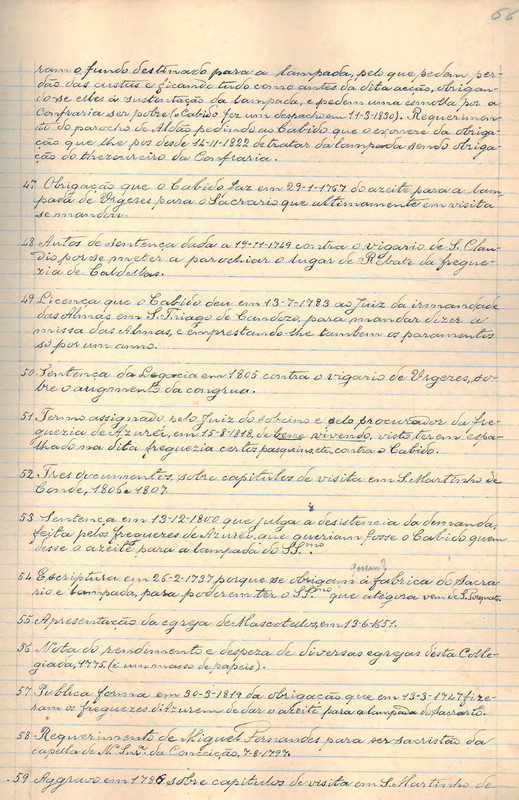 66
ram o fundo destinado para a lampada, pelo que pedem per-
dão das custas e ficando tudo como antes da dita acção, obrigan-
do-se elles á sustentação da lampada, e pedem uma esmolla por a
Confraria ser pobre (o Cabido fez um despacho em 11-3-1830). Requerimen-
to do parocho de Aldão pedindo ao Cabido que o exonere da obriga-
ção que lhe poz desde 14-11-1822 de tratar da lampada sendo obriga-
ção do thezoureiro da Confraria.
47. Obrigação que o Cabido faz em 29-1-1767 do azeite para a lam-
pada de Urgeres para o Sacrario que ultimamente em visita
se mandou.
48 Autos de sentença dada a 19-11-1749 contra o vigario de S. Clau-
dio por se meter a parochiar o lugar de Rebate da fregue-
zia de Caldellas.
49. Licença que o Cabido deu em 13-7-1783 ao Juiz da irmandade
das Almas em S. Thiago de Candozo, para mandar dizer a
missa das Almas, e emprestando-lhe tambem os paramentos
só por um anno.
50. Sentença da Legacia em 1805 contra o vigario de Urgeres, so-
bre o augmento da congrua.
51. Termo assignado pelo Juiz do sobsino e pelo procurador da fre-
guezia de Azurei, em 15-8-1818, de bene vivendo, visto terem espa-
lhado na dita freguezia certos pasquins etc. contra o Cabido.
52. Tres documentos, sobre capitulos de visita em S. Martinho de
Conde, 1806 e 1807.
53 Sentença em 13-12-1800 que julga a desistencia da demanda,
feita pelos freguezes de Azurei, que queriam fosse o Cabido quem
desse o azeite para a lampada do SS.mo
54 Escriptura em 26-2-1737 porque se obrigam á fabrica do Sacra-
rio e lampada, para poderem ter o SS.mo que atégora vem de S.
55 Apresentação da egreja de Mascotellos, em 13-6-1651.
56 Nota do rendimento e despeza de diversas egrejas desta Colle-
giada, 1775. (é um masso de papeis).
57 Publica forma em 30-3-1819 da obrigação que em 13-3-1747 fize-
ram os freguezes d'Azurem de dar o azeite para a lampada do sacrario.
58 Requerimento de Miguel Fernandes para ser sacristão da
capella de N.ª Snr.ª da Conceição, 7-8-1797.
59 Aggravo em 1786 sobre capitulos de visita em S. Martinho de